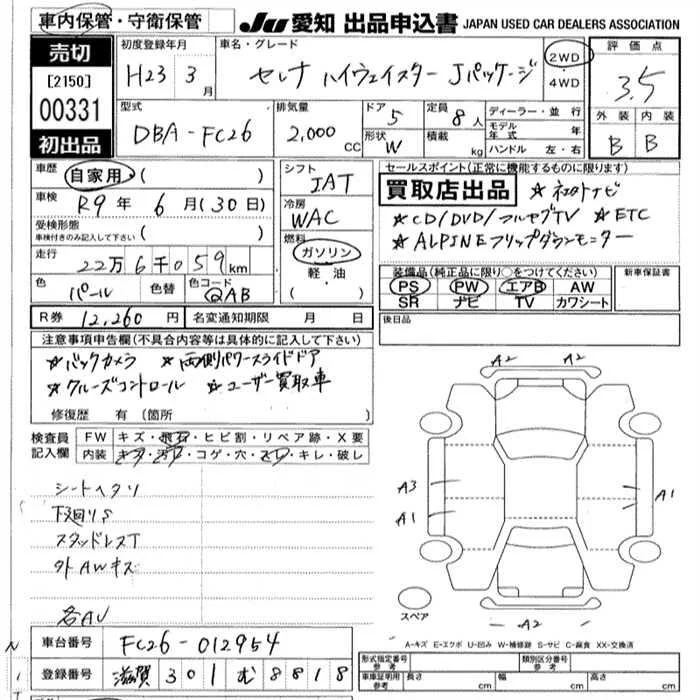 車内保管・守衛保管
Ju 愛知 出品申込書 JAPAN USED CAR DEALERS ASSOCIATION
売切
[2150]
00331
初出品
初度登録年月
H23 3月
車名・グレード
セレナ ハイウェイスター Jパッケージ
2WD
・
4WD
評価点
3.5
外装 内装
B B
型式
DBA-FC26
排気量
2,000 CC
ドア
5
定員
8人
形状
W
積載
kg
ディーラー・並行
モデル年式 年
ハンドル 左・右
車歴
自家用( )
車検
R9年 6月(30日)
受検形態
車検付きのみ記入して下さい ( )
走行
22万6千059km
色
パール
色替
色コード
QAB
シフト
IAT
冷房
WAC
燃料
ガソリン
軽・油
( )
セールスポイント(正常に機能するものに限ります)
買取店出品 ☆ネロナビ
☆CD/DVD/フルセグTV ☆ETC
☆ALPINEフリップダウンモニター
装備品(純正品に限り○をつけてください)
PS PW エアB AW
SR ナビ TV カワシート
新車保証書
後日品
R券 12,260円 名変通知期限 月 日
注意事項申告欄(不具合内容等は具体的に記入して下さい)
☆バックカメラ ☆両側パワースライドドア
☆クルーズコントロール ☆ユーザー買取車
修復歴 有 (箇所
検査員記入欄
FW キズ・飛石・ヒビ割・リペア跡・X要
内装 キズ・汚れ・コゲ・穴・スレ・キレ・破レ
シートヘタリ
下廻りS
スタッドレスT
外AWキズ
各AU
A2 A2
A3
A1
A1
A2
スペア
A-キズ E-エクボ U-凹み W-補修跡 S-サビ C-腐食 XX-交換済
車台番号 FC26-012954
登録番号 滋賀 301 む 8818
形式指定番号
参考
類別区分番号
参考
車庫証明用
参考
長さ cm 幅 cm 高さ cm